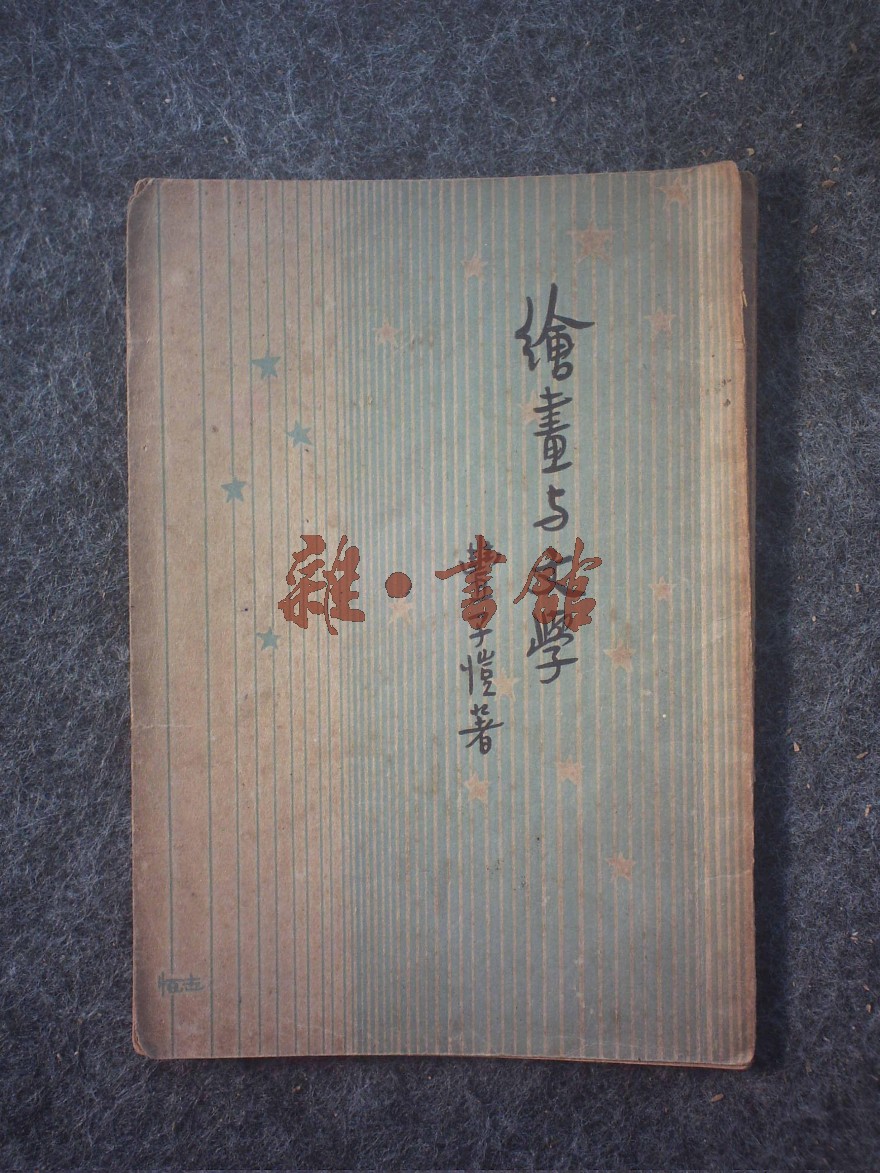 繪畫与文學
豐子愷著
雜·書館
恒志